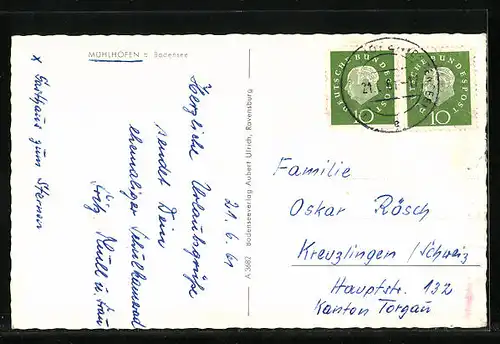 MÜHLHOFEN a. Bodensee
x Gasthaus zum Sternen
21. 6. 61
Herzliche Urlaubsgrüße
sendet Dein
ehemaliger Schulkamerad
Fritz Knull u. Frau
A 3682 Bodenseeverlag Aubert Ullrich, Ravensburg
DEUTSCHE BUNDESPOST
10
DEUTSCHE BUNDESPOST
10
21.6.61
e
Familie
Oskar Rösch
Kreuzlingen/Schweiz
Hauptstr. 132
Kanton Torgau